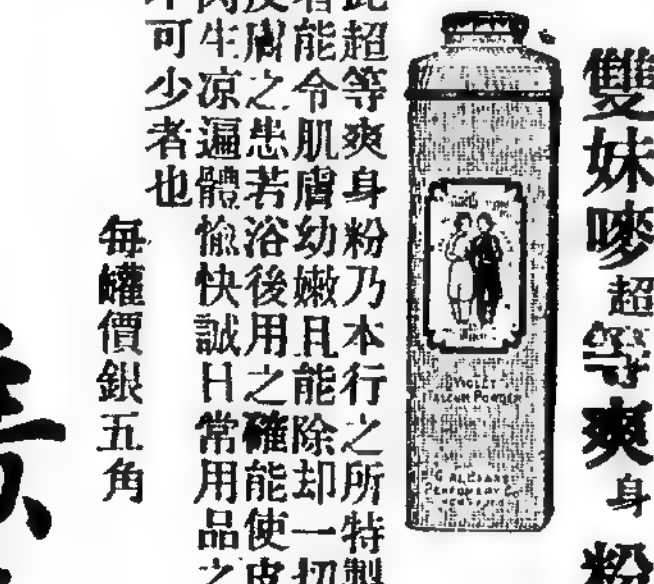 雙妹嘜超等爽身粉
VIOLET
TALCUM POWDER
PERFUMERY CO
此超等爽身粉乃本行之所特製
者能令肌膚幼嫩且能除却一切
皮膚之患若浴後用之確能使皮
肉生凉遍體愉快誠日常用品之
不可少者也
每罐價銀五角